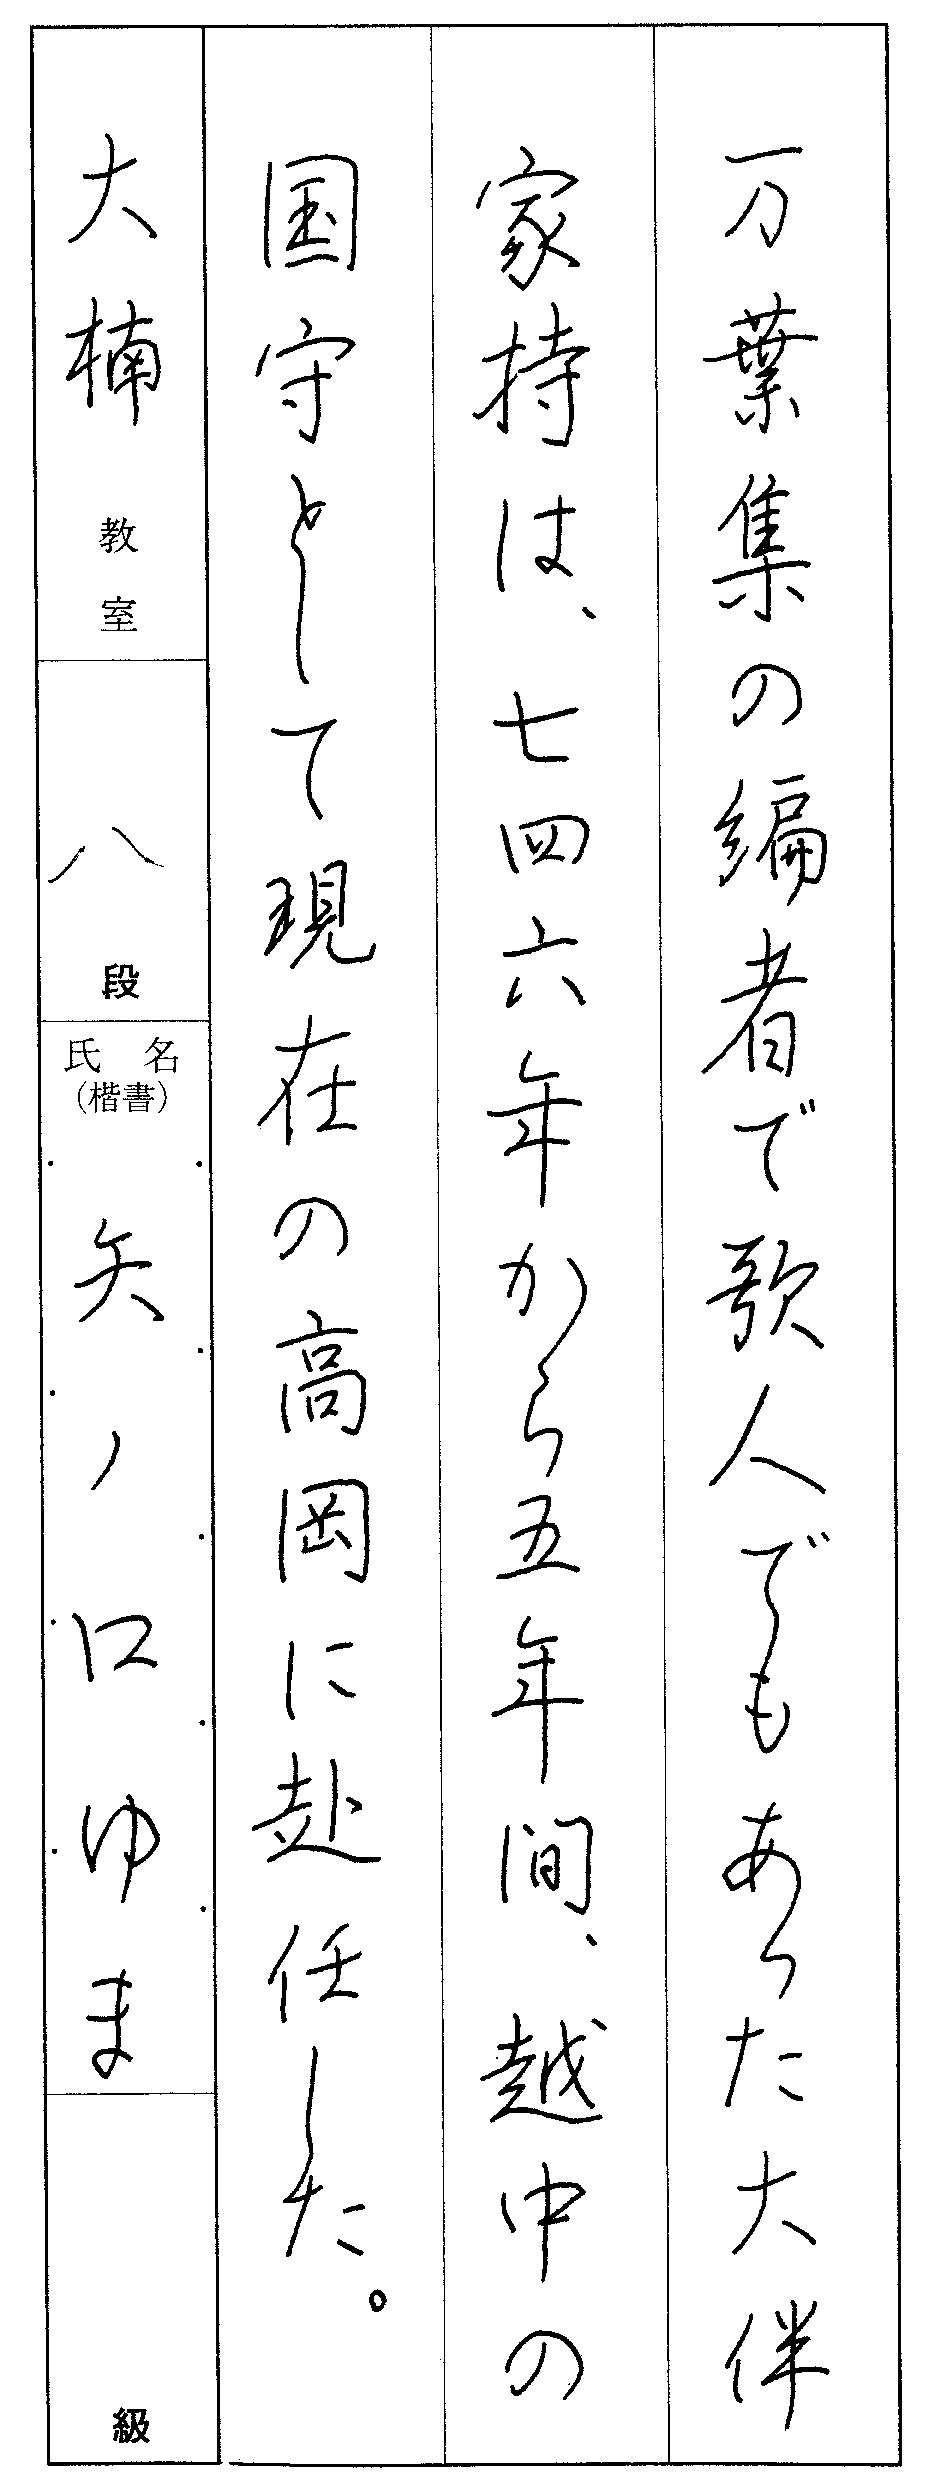 万葉集の編者で歌人でもあった大伴
家持は、七四六年から五年間、越中の
国守として現在の高岡に赴任した。
大楠 教室
八 段
氏名
(楷書)
矢ノ口ゆま
級